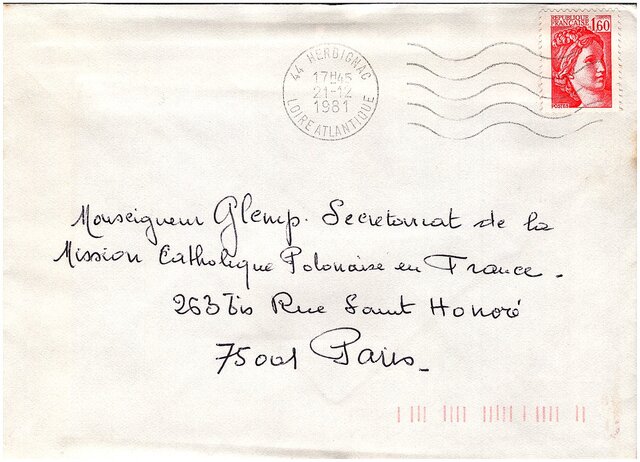 REPUBLIQUE
FRANCAISE
1,60
POSTES
44 HERBIGNAC
17H45
21-12
1981
LOIRE ATLANTIQUE
Monseigneur Glemp. Secretariat de la
Mission Catholique Polonaise en France.
263 Bis Rue Saint Honoré
75001 Paris_